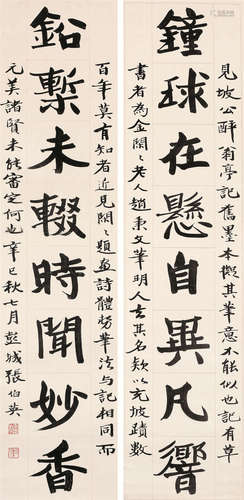 鐘球在懸自異凡響
見坡公醉翁亭記舊墨本擬其筆意不能似也記有草
書者為金閑〻老人趙秉文筆明人去其名款以充坡蹟數
百年莫有知者近見閑〻題畫詩體勢筆法与記相同而
鉛槧未輟時聞妙香
元美諸賢未能審定何也辛巳秋七月彭城張伯英